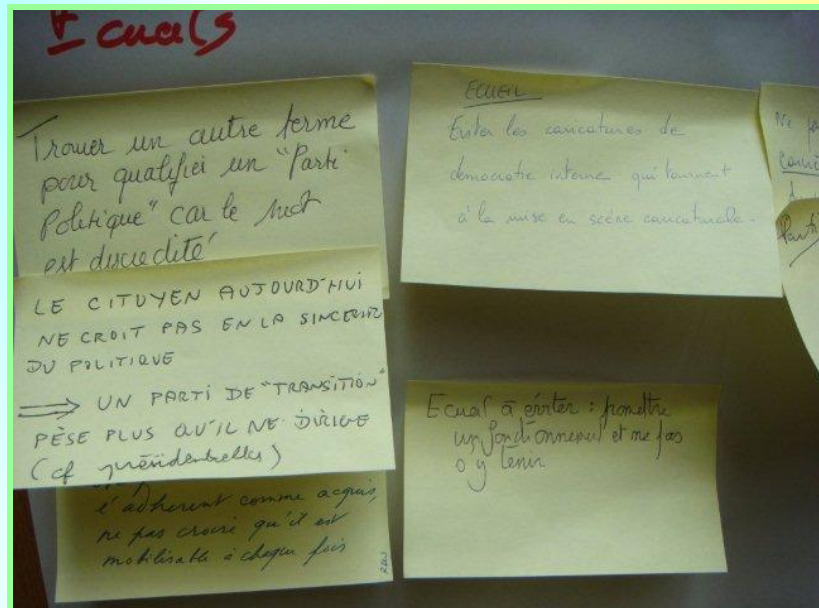 Ecuals
Trouver un autre terme
pour qualifier un "Parti
Politique" car le mot
est discrédité
LE CITOYEN AUJOURD'HUI
NE CROIT PAS EN LA SINCERITE
DU POLITIQUE
⟹ UN PARTI DE "TRANSITION"
PÈSE PLUS QU'IL NE DIRIGE
(cf présidentielles)
l'adhérent comme acquis,
ne pas croire qu'il est
mobilisable à chaque fois
ECUEIL
Eviter les caricatures de
démocratie interne qui tournent
à la mise en scène caricaturale.
Ecual à éviter : promettre
un fonctionnement et ne pas
s'y tenir
Ne
Parti